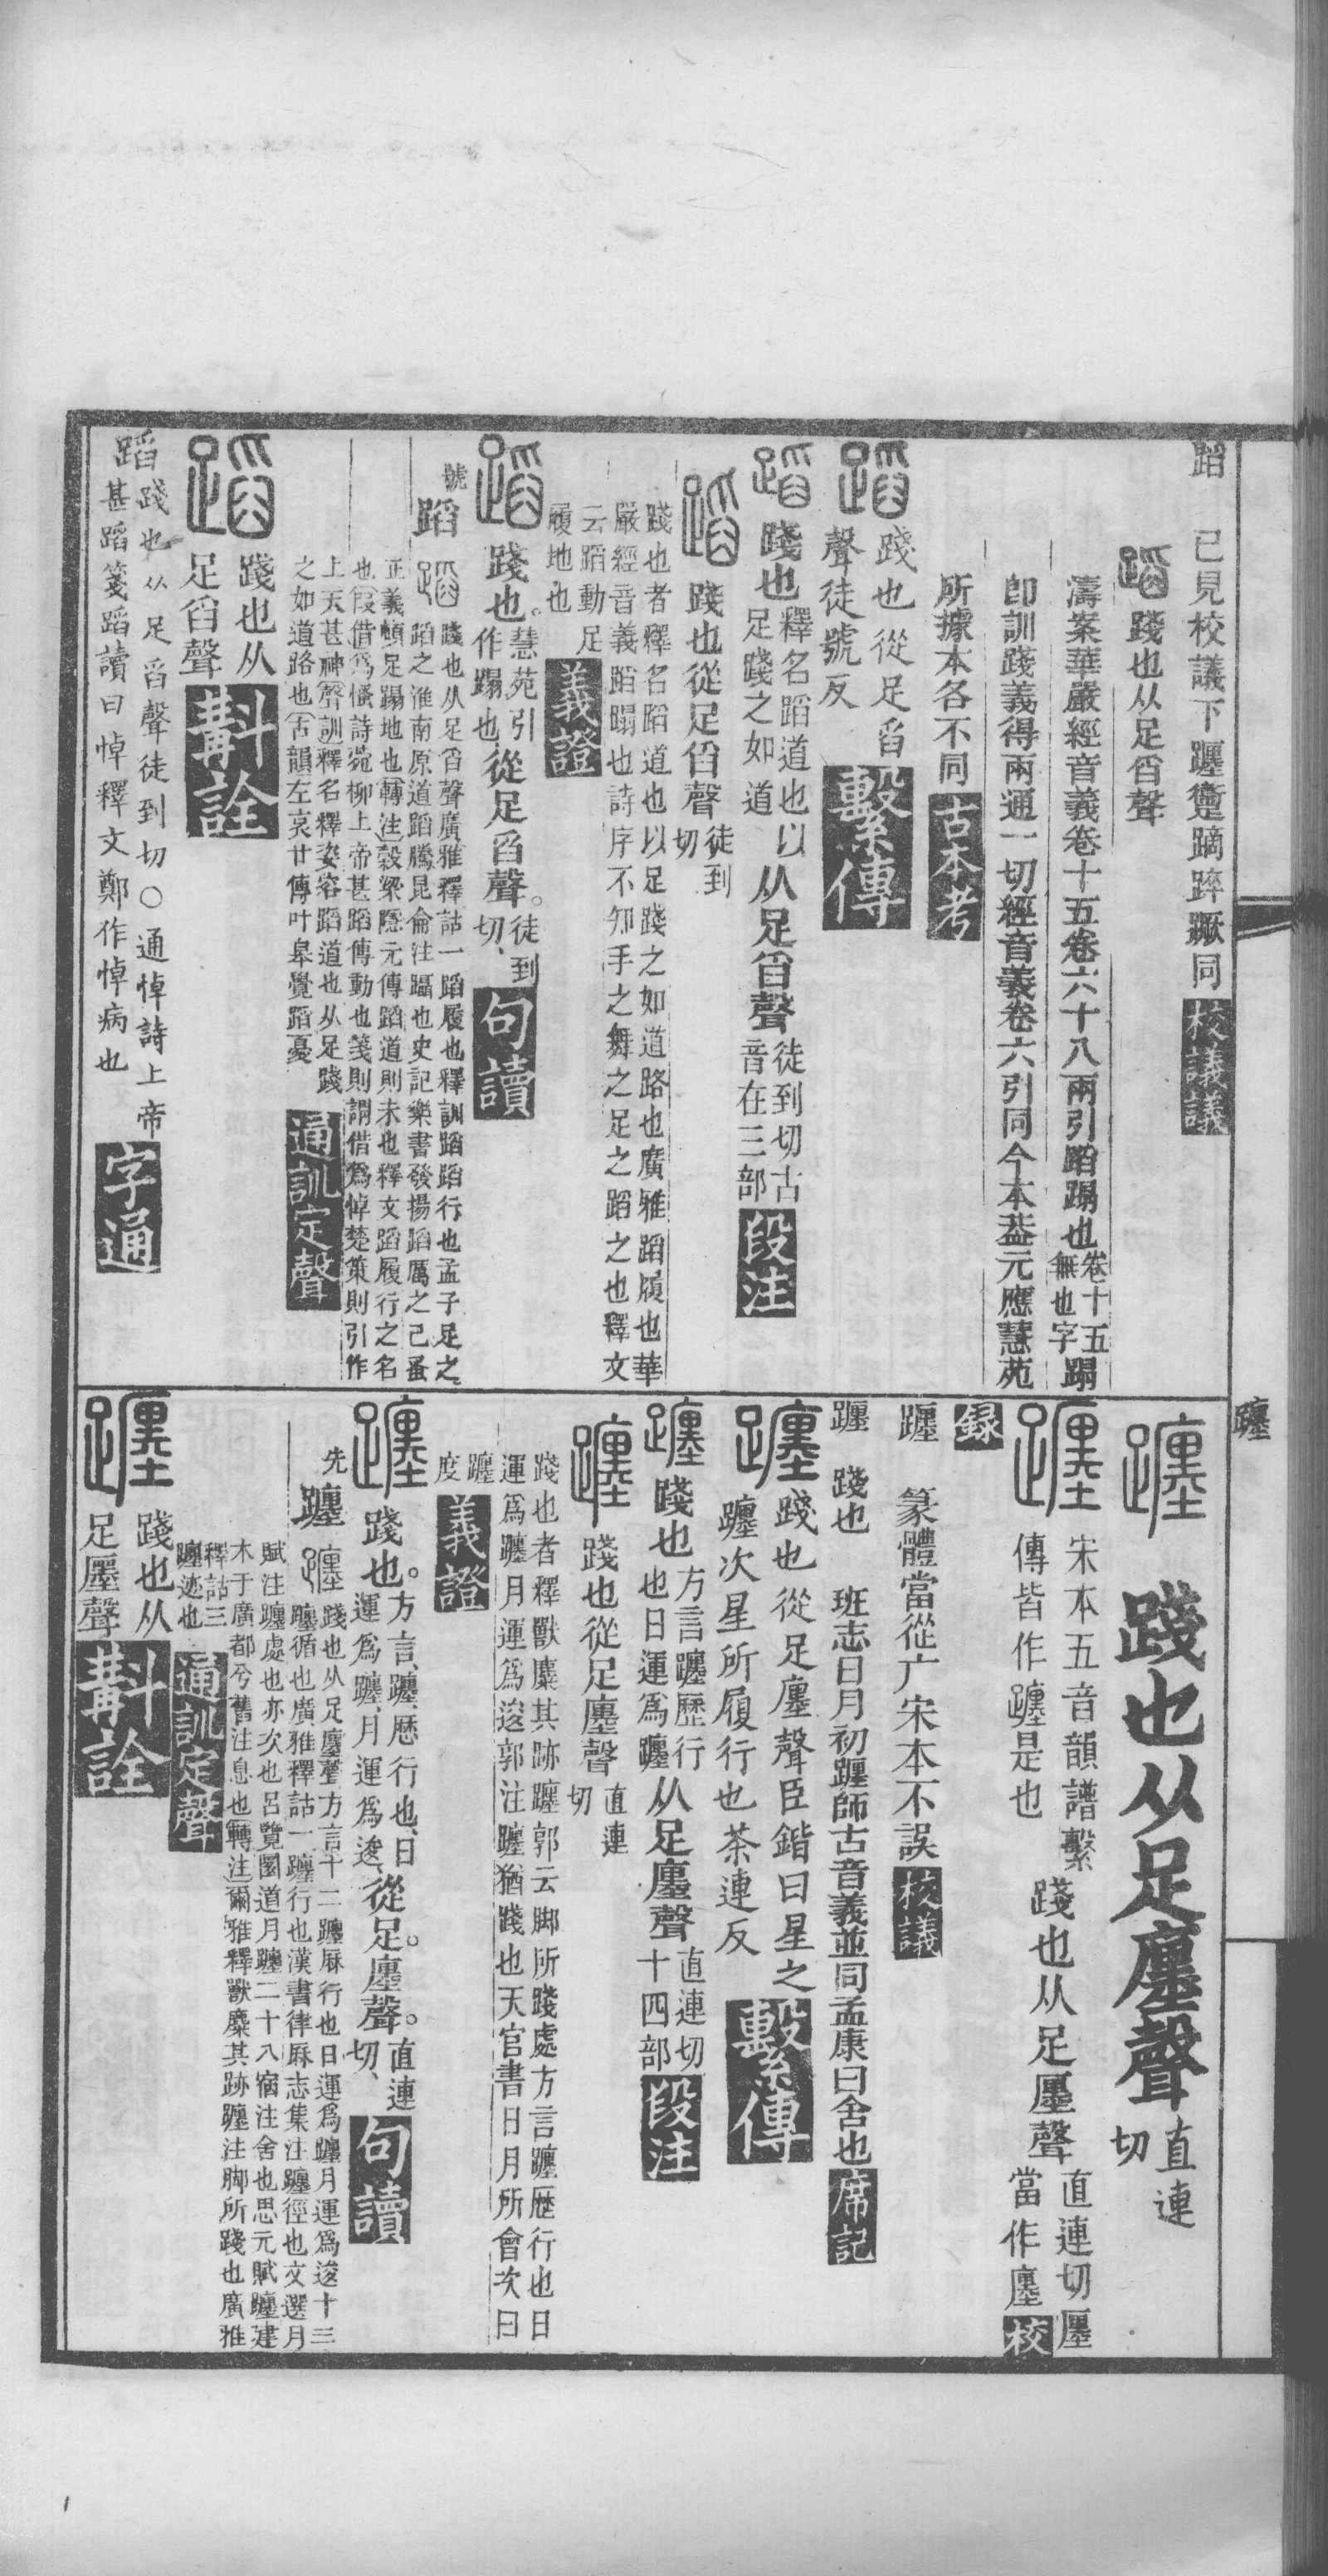 蹈　已見校議下躔躛蹢踤蹶同校議議
蹈踐也从足舀聲
濤案華嚴經音義卷十五卷六十八兩引蹈蹋也卷十五無也字蹋
卽訓踐義得兩通一切經音義卷六引同今本葢元應慧苑
所據本各不同古本考
蹈踐也從足舀聲徒號反繫傳
蹈踐也釋名蹈道也以足踐之如道从足舀聲徒到切古音在三部段注
蹈踐也從足舀聲徒到切
踐也者釋名蹈道也以足踐之如道路也廣雅蹈履也華
嚴經音義蹈蹋也詩序不知手之舞之足之蹈之也釋文
云蹈動足
履地也義證
蹈踐也。慧苑引作蹋也從足舀聲。徒到切、句讀
號
蹈蹈踐也从足舀聲廣雅釋詁一蹈履也釋訓蹈蹈行也孟子足之
蹈之淮南原道蹈騰昆侖注躡也史記樂書發揚蹈厲之已蚤
正義頓足蹋地也轉注穀梁隱元傳蹈道則未也釋文蹈履行之名
也叚借爲慆詩菀柳上帝甚蹈傳動也箋則謂借爲悼楚策則引作
上天甚神聲訓釋名釋姿容蹈道也从足踐
之如道路也古韻左哀廿傳叶皋覺蹈憂通訓定聲
蹈踐也从足舀聲斠詮
蹈踐也从足舀聲徒到切○通悼詩上帝
甚蹈箋蹈讀曰悼釋文鄭作悼病也字通
躔
躔　踐也从足廛聲直連切
躔宋本五音韻譜繫傳皆作躔是也　踐也从足㕓聲直連切㕓當作廛校
録
躔　篆體當從广宋本不誤校議
躔　踐也　班志日月初躔師古音義並同孟康曰舍也席記
躔踐也從足廛聲臣鍇曰星之
躔次星所履行也茶連反繫傳
躔踐也方言躔歷行也日運爲躔从足廛聲直連切十四部段注
躔踐也從足廛聲直連切
踐也者釋獸麋其跡躔郭云脚所踐處方言躔歷行也日
運爲躔月運爲逡郭注躔猶踐也天官書日月所會次曰
躔
度義證
躔踐也。方言、躔、歷行也、日運爲躔、月運爲逡、從足。廛聲。直連切、句讀
先
躔躔踐也从足廛聲方言十二躔厤行也日運爲躔月運爲逡十三
躔循也廣雅釋詁一躔行也漢書律厤志集注躔徑也文選月
賦注躔處也亦次也呂覽圜道月躔二十八宿注舍也思元賦躔建
木于廣都兮舊注息也轉注爾雅釋獸麋其跡躔注脚所踐也廣雅
釋詁三
躔迹也通訓定聲
躔踐也从足㕓聲斠詮